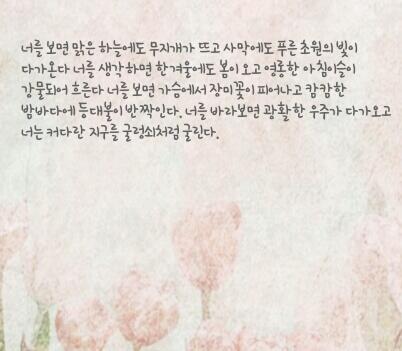 너를 보면 맑은 하늘에도 무지개가 뜨고 사막에도 푸른 초원의 빛이
다가온다 너를 생각하면 한겨울에도 봄이 오고 영롱한 아침이슬이
강물되어 흐른다 너를 보면 가슴에서 장미꽃이 피어나고 캄캄한
밤바다에 등대불이 반짝인다. 너를 바라보면 광활한 우주가 다가오고
너는 커다란 지구를 굴렁쇠처럼 굴린다.